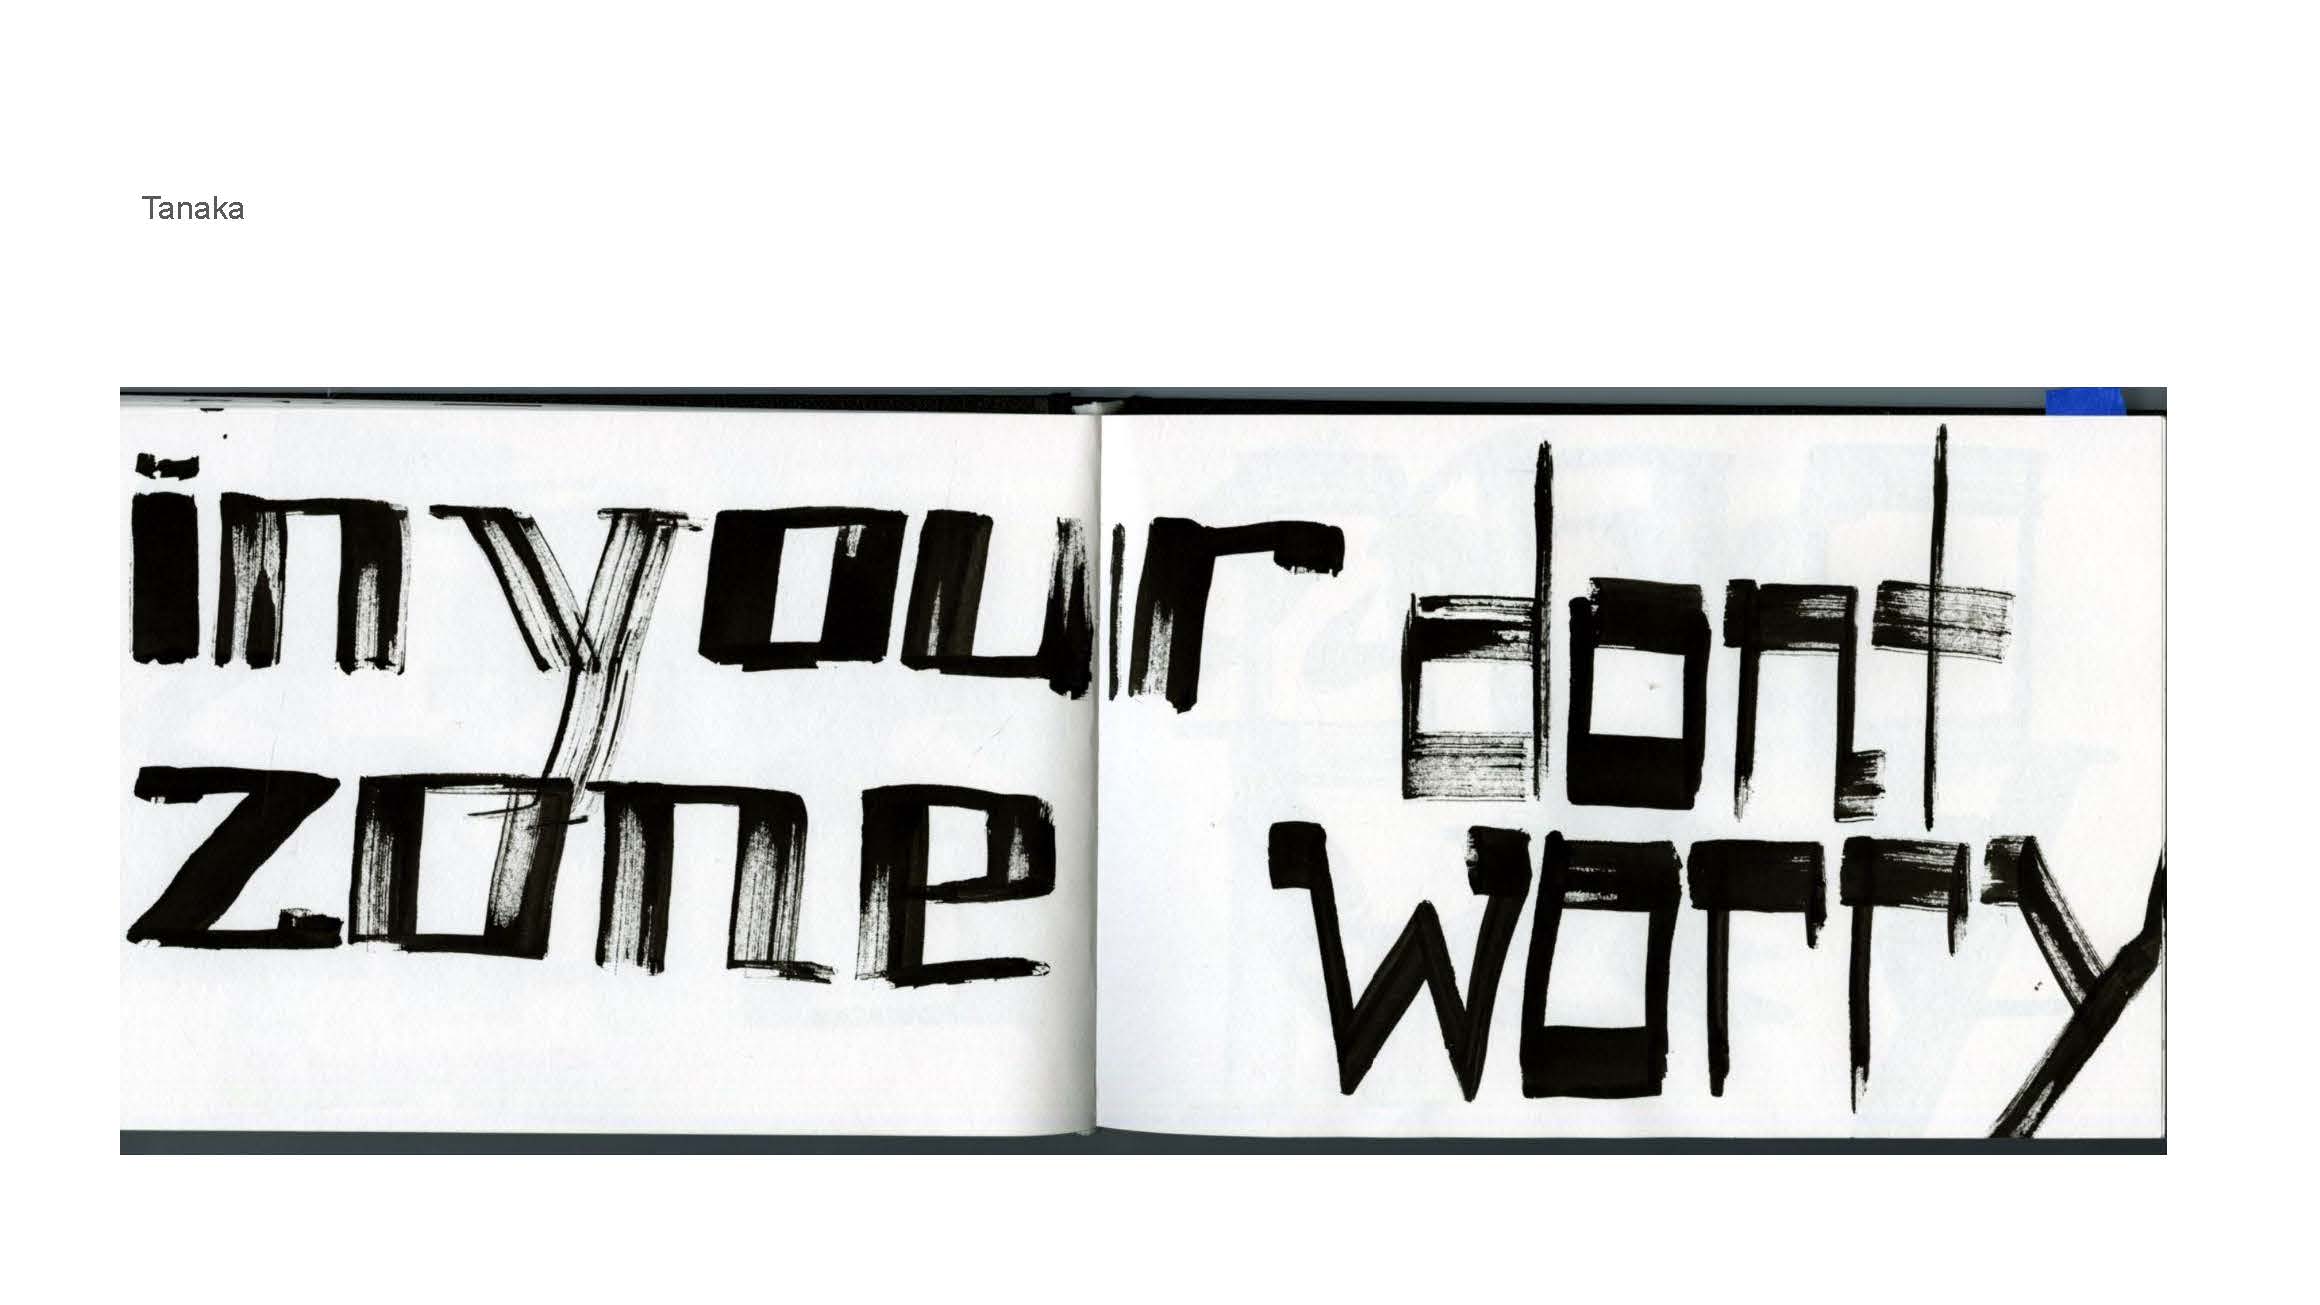 Tanaka
in your
zone
dont
worry